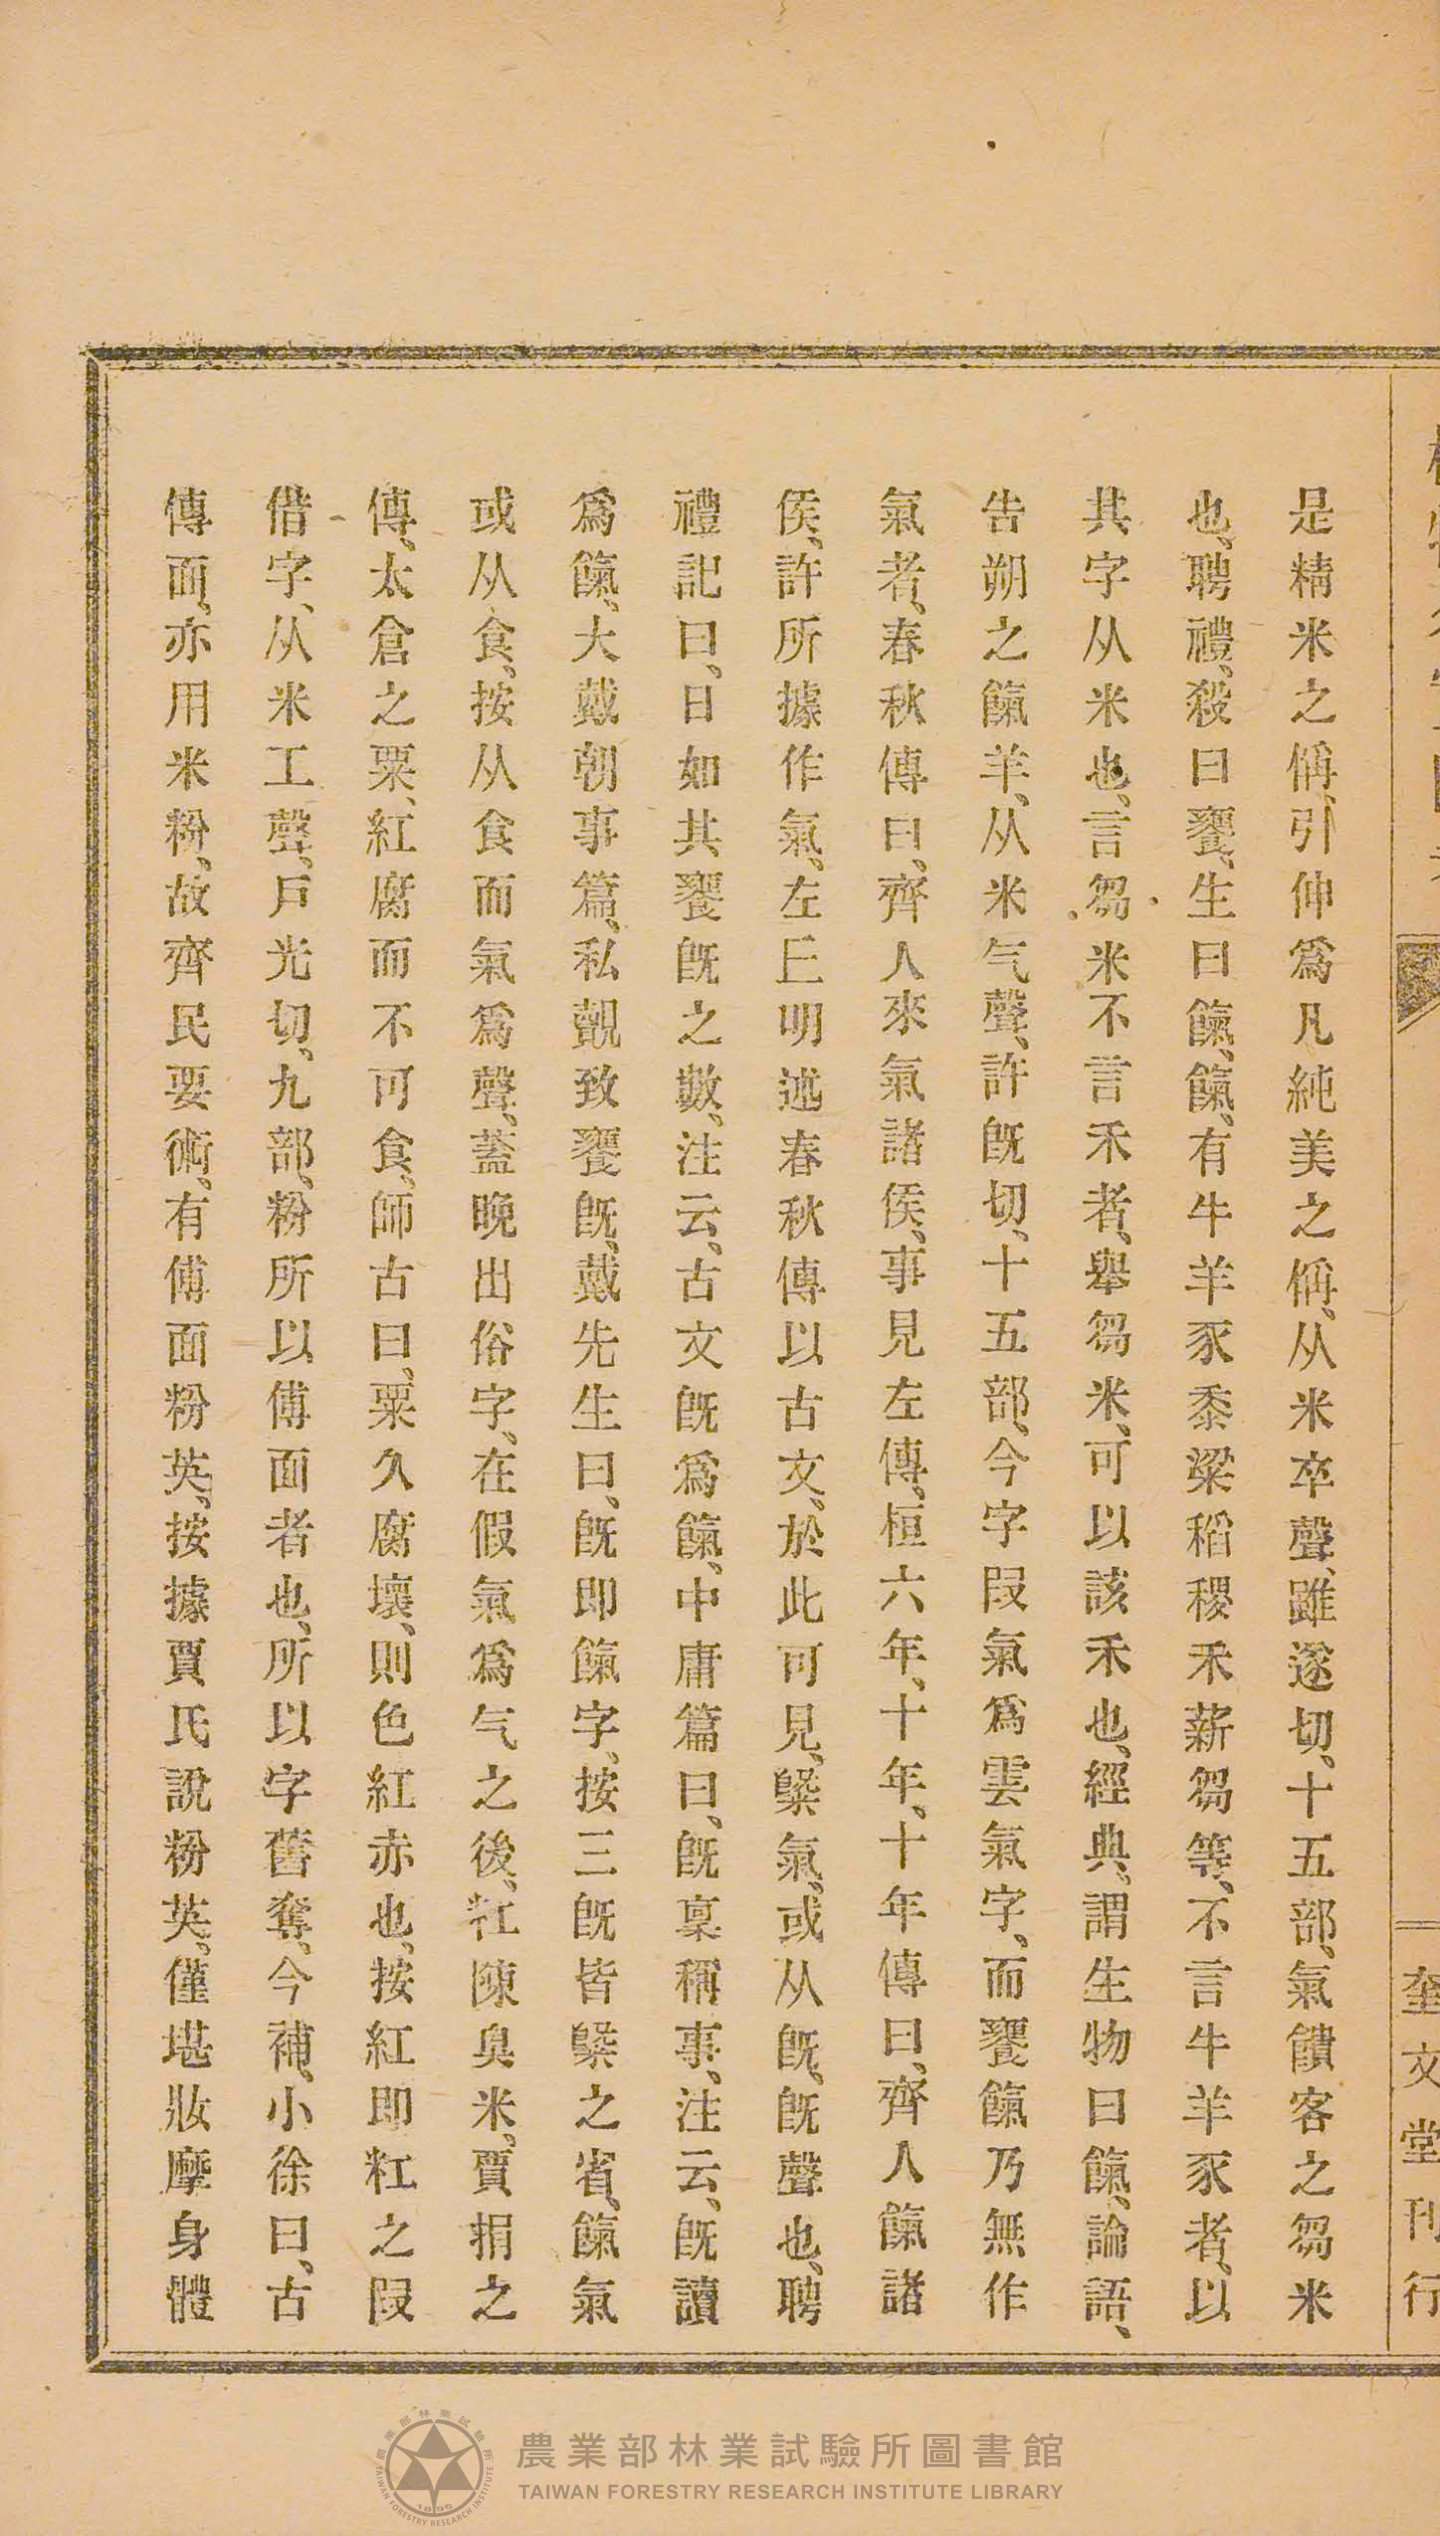 奎文堂刊行
是精米之稱、引伸爲凡純美之稱、从米卒聲、雖遂切、十五部、氣饋客之芻米
也、聘禮、殺曰饔、生曰餼、餼、有牛羊豕黍粱稻稷禾薪芻等、不言牛羊豕者、以
其字从米也、言芻米不言禾者、舉芻米、可以該禾也、經典、謂生物曰餼、論語、
告朔之餼羊、从米气聲、許旣切、十五部、今字叚氣爲雲氣字、而饔餼乃無作
氣者、春秋傳曰、齊人來氣諸侯、事見左傳、桓六年、十年、十年傳曰、齊人餼諸
侯、許所據作氣、左丘明述春秋傳以古文、於此可見、䊠氣、或从旣、旣聲也、聘
禮記曰、日如其饔旣之數、注云、古文旣爲餼、中庸篇曰、旣稟稱事、注云、旣讀
爲餼、大戴朝事篇、私覿致饔旣、戴先生曰、旣即餼字、按三旣皆䊠之省、餼氣
或从食、按从食而氣爲聲、蓋晚出俗字、在假氣爲气之後、粠陳臭米、賈捐之
傳、太倉之粟、紅腐而不可食、師古曰、粟久腐壞、則色紅赤也、按紅即粠之叚
借字、从米工聲、戶光切、九部、粉所以傅面者也、所以字舊奪、今補、小徐曰、古
傳面、亦用米粉、故齊民要術、有傅面粉英、按據賈氏說粉英、僅堪妝摩身體
農業部林業試驗所圖書館
TAIWAN FORESTRY RESEARCH INSTITUTE LIBRARY